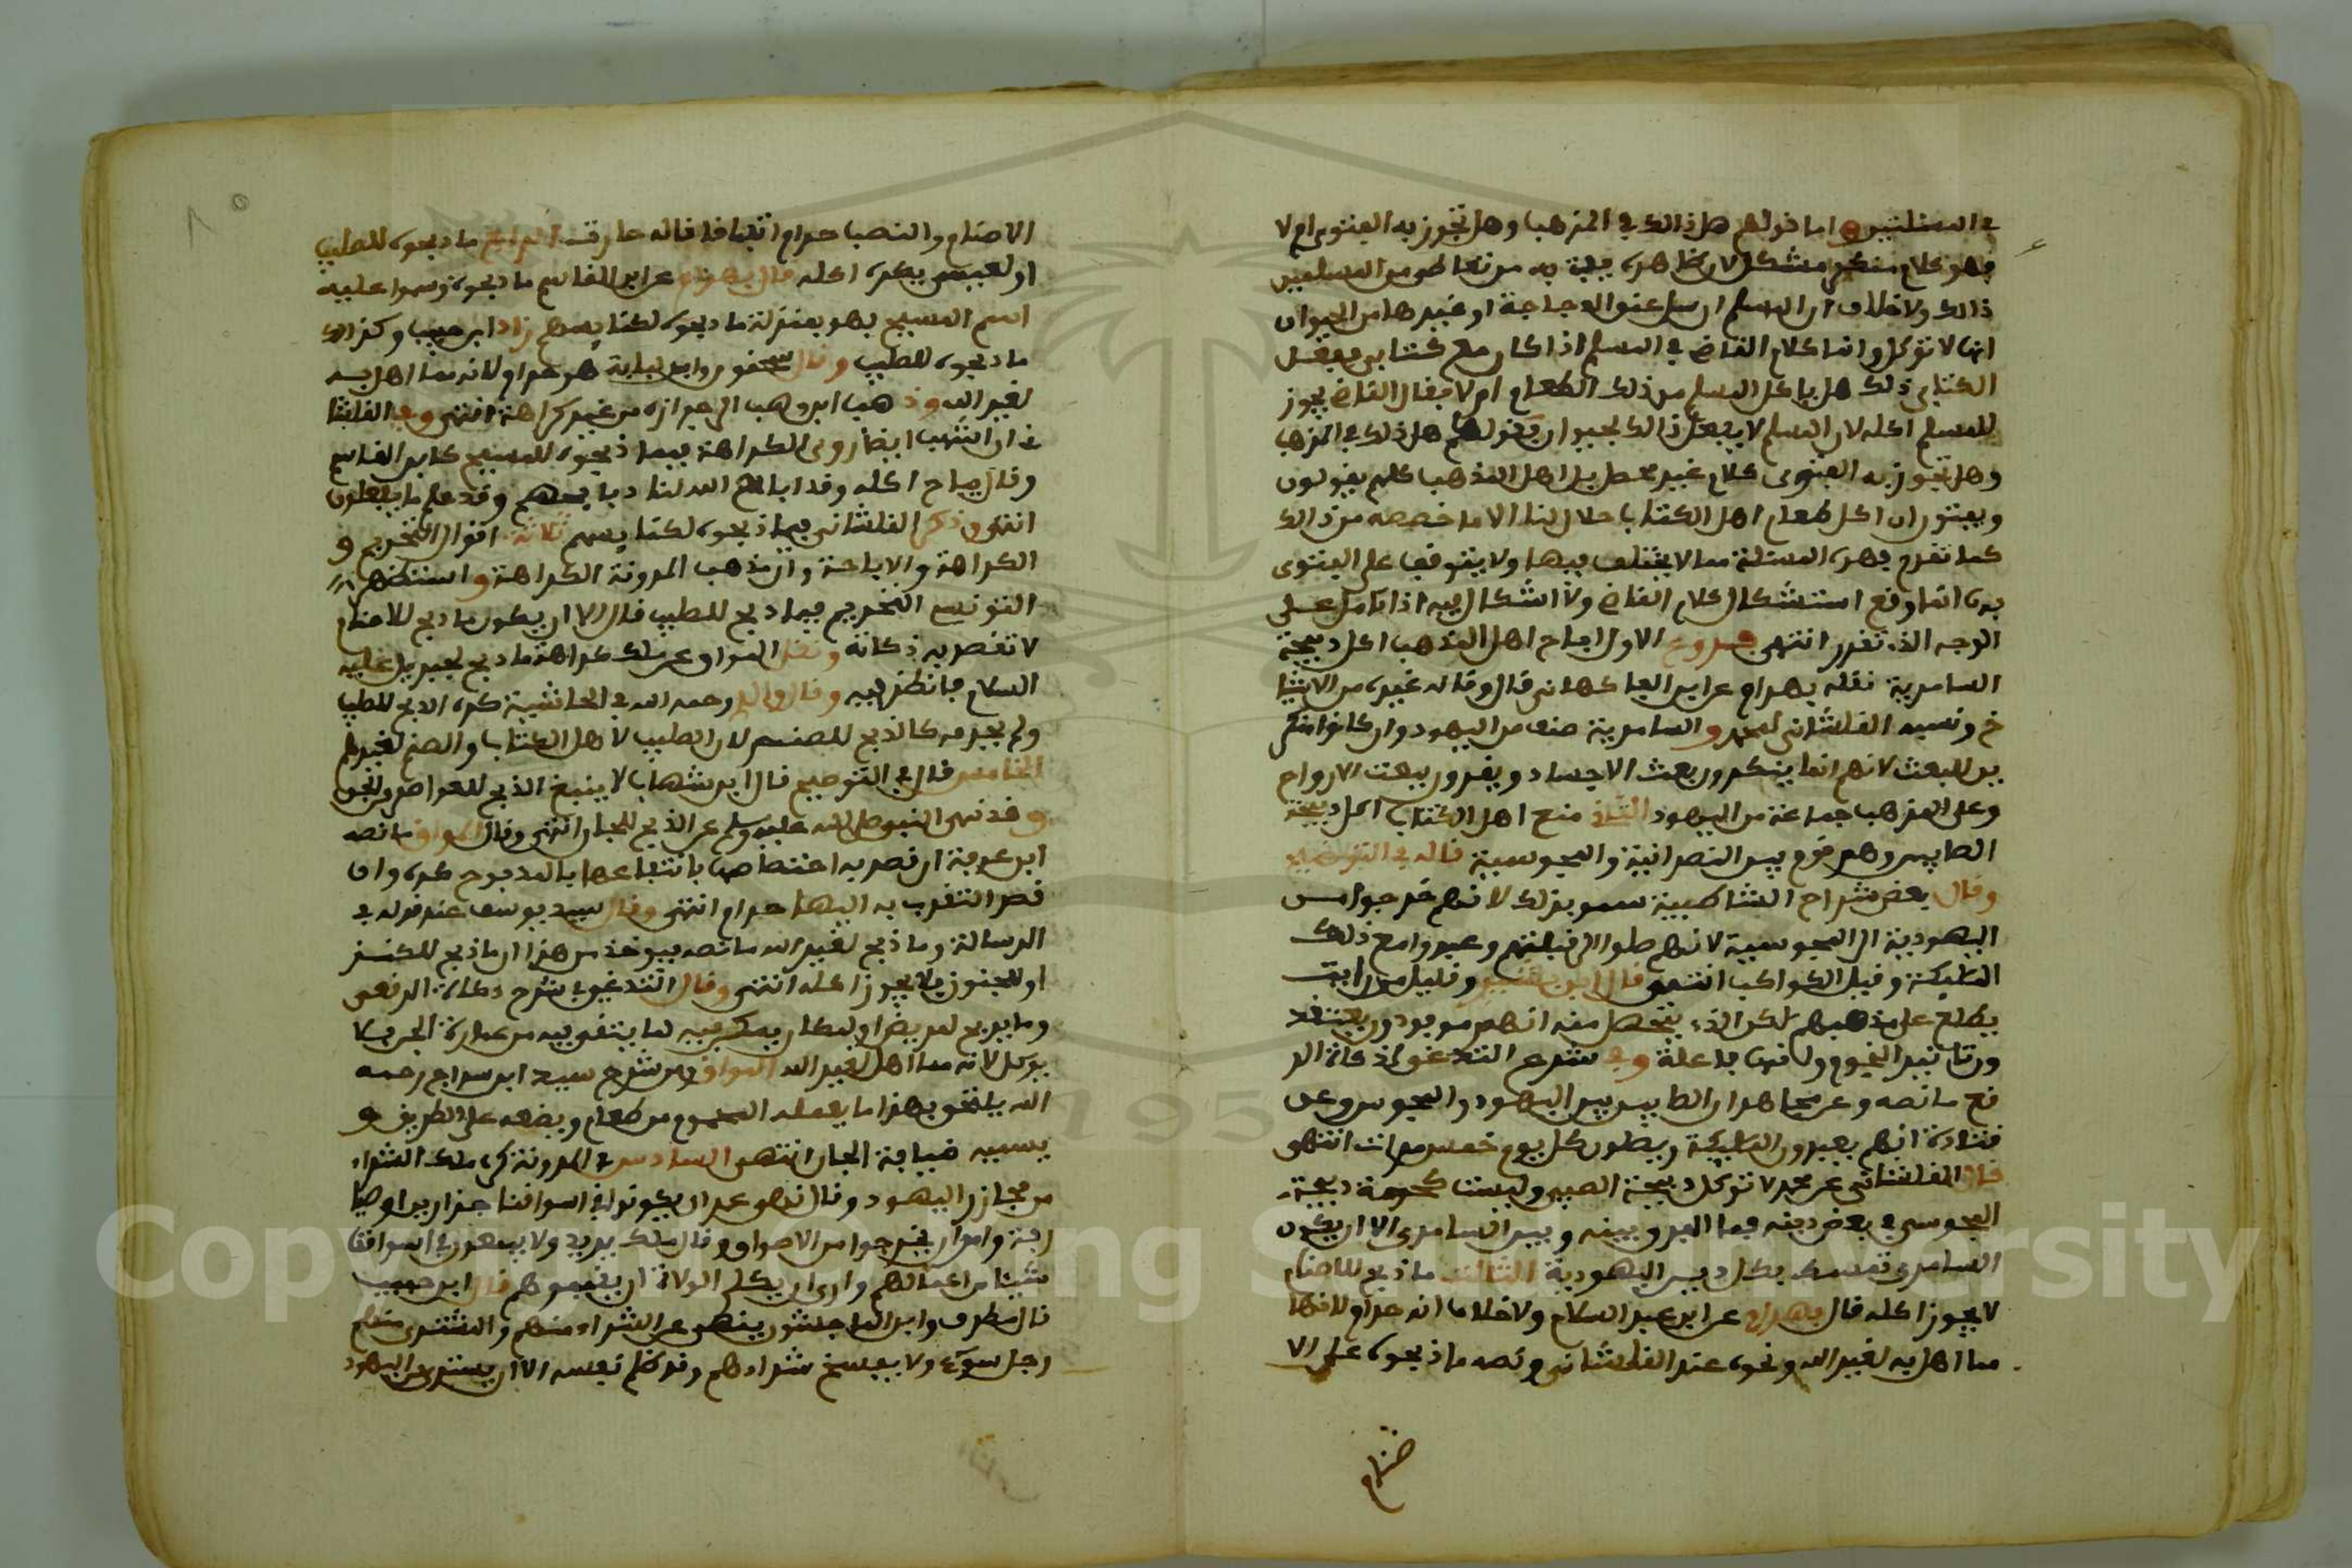 في المسئلتين اما قولهم هل ذالك في المذهب وهل تجوز به الفتوى ام لا
فهو كلام منكر مشكل لان ظاهره
ذالك ولا خلاف ان المسلم ان سل عنق الدجاجة او غيرها من الحيوان
انها لا توكل وانما كلام القاضي في المسلم اذا كان مع كتابي ففعل
الكتابي ذلك هل ياكل المسلم من ذلك الطعام ام لا فقال القاضي يجوز
للمسلم اكله لان المسلم لا يفعل ذالك بحيوان فقولهم هل ذلك في المذهب
وهل تجوز به الفتوى كلام غير محصل بل اهل المذهب كلهم يقولون
ويفتون ان اكل طعام اهل الكتاب حلال لنا الا ما خصصه من ذالك
كما تقدم فهذه المسئلة مما لا يختلف فيها ولا يتوقف على الفتوى
بها انما وقع استشكال كلام القاضي ولا اشكال فيه اذا تامل على
الوجه الذي تقرر انتهى فروع الاول اباح اهل المذهب اكل ذبيحة
السامرية نقله بهرام عن ابن الفاكهاني قال وقاله غيره من الاشيا
خ ونسبه القلشاني لمحمد والسامرية صنف من اليهود وان كانوا منكر
ين للبعث لانهم انما ينكرون بعث الاجساد ويقرون ببعث الارواح
وعلى المذهب جماعة من اليهود الثاني منع اهل الكتاب اكل ذبيحة
الصابين وهم قوم بين النصرانية والمجوسية قاله في التوضيح
وقال بعض شراح الشاطبية سمو بذلك لانهم خرجوا من
اليهودية الى المجوسية لانهم صلوا الى قبلتهم وعبدوا مع ذلك
الملئكة وقيل الكواكب انتهى قال ابن وقليل من رايت
يطلع على مذهبهم لكن الذي يتحصل منه انهم موحدون يعتقد
ون تاثير النجوم وانها فاعلة وفي شرح التتائي
فع ما نصه وعن مجاهد ان الصابين بين اليهود والمجوس وعن
قتادة انهم يعبدون الملئكة ويصلون كل يوم خمس مرات انتهى
قال القلشاني عن محمد لا توكل ذبيحة الصبي وليست كحرمة ذبيحة
المجوسي في بعض دينه فما الفرق بينه وبين السامري الا ان يكون
السامري تمسك بكل دين اليهودية الثالث ما ذبح للاصنام
لا يجوز اكله قال بهرام عن ابن عبد السلام ولا خلاف انه حرام لانها
مما اهل به لغير الله ونحوه عند القلشاني ونصه ما ذبحوه على الا
صنام
الاصنام والنصب حرام اتفاقا قاله الرابع ما ذبحوه للصليب
او لعيسى يكره اكله قال بهرام عن ابن القاسم ما ذبحوه وسموا عليه
اسم المسيح فهو بمنزلة ما ذبحوه لكنايسهم زاد ابن حبيب وكذالك
ما ذبحوه للصليب وقال سحنون وابن لبابة هو حرام لانه مما اهل به
لغير الله وذهب ابن وهب الى جوازه من غير كراهة انتهى وفي القلشا
ني ان اشهب ايضا روى الكراهة فيما ذبحوه للمسيح كابن القاسم
وقال يباح اكله وقد اباح الله لنا ذبايحهم وقد علم ما يفعلون
انتهى وذكر القلشاني فيما ذبحوه لكنايسهم ثلاثة اقوال التحريم و
الكراهة والاباحة وان مذهب المدونة الكراهة واستظهر
التونسي التحريم فيما ذبح للصليب قال الا ان يكون ما ذبح للاصنام
لا تقصد به ذكاته ونقل المواق عن ملك كراهة ما ذبح لجبريل عليه
السلام فانظر فيه وقال والدي رحمه الله في الحاشية كره الذبح للصليب
ولم يحرمه كالذبح للصنم لان الصليب لاهل الكتاب والصنم لغيرهم
الخامس قال في التوضيح قال ابن شهاب لا ينبغي الذبح للعوامر ولنحوه
وقد نهى النبي صلى الله عليه وسلم عن الذبح للجان انتهى وقال المواق ما نصه
ابن عرفة ان قصد به اختصاصها بانتفاعها بالمذبوح كره وان
قصد التقرب به اليها حرام انتهى وقال سيدي يوسف عند قوله في
الرسالة وما ذبح لغير الله ما نصه يوخذ من هذا ان ما ذبح للكنز
او للمجنون فلا يجوز اكله انتهى وقال
وما يذبح لمريض او لمكان
يوكل لانه مما اهل لغير الله المواق ومن شرح سيدي ابن سراج رحمه
الله يلتحق بهذا ما يعمله المحموم من طعام ويضعه على الطريق و
يسميه ضيافة الجان انتهى السادس في المدونة كره ملك الشراء
من مجازر اليهود وقال نهى عمر ان يكونوا في اسواقنا جزارين او صيا
رفة وامر ان يخرجوا من الاسواق وقال ملك يريد ولا يبيعون في اسواقنا
شيئا من اعمالهم وارى ان يكلم الولاة ان يقيموهم قال ابن حبيب
قال مطرف وابن الماجشون ينهى عن الشراء منهم والمشترى منهم
رجل سوء ولا يفسخ شراءهم وقد ظلم نفسه الا ان يشتري من اليهود